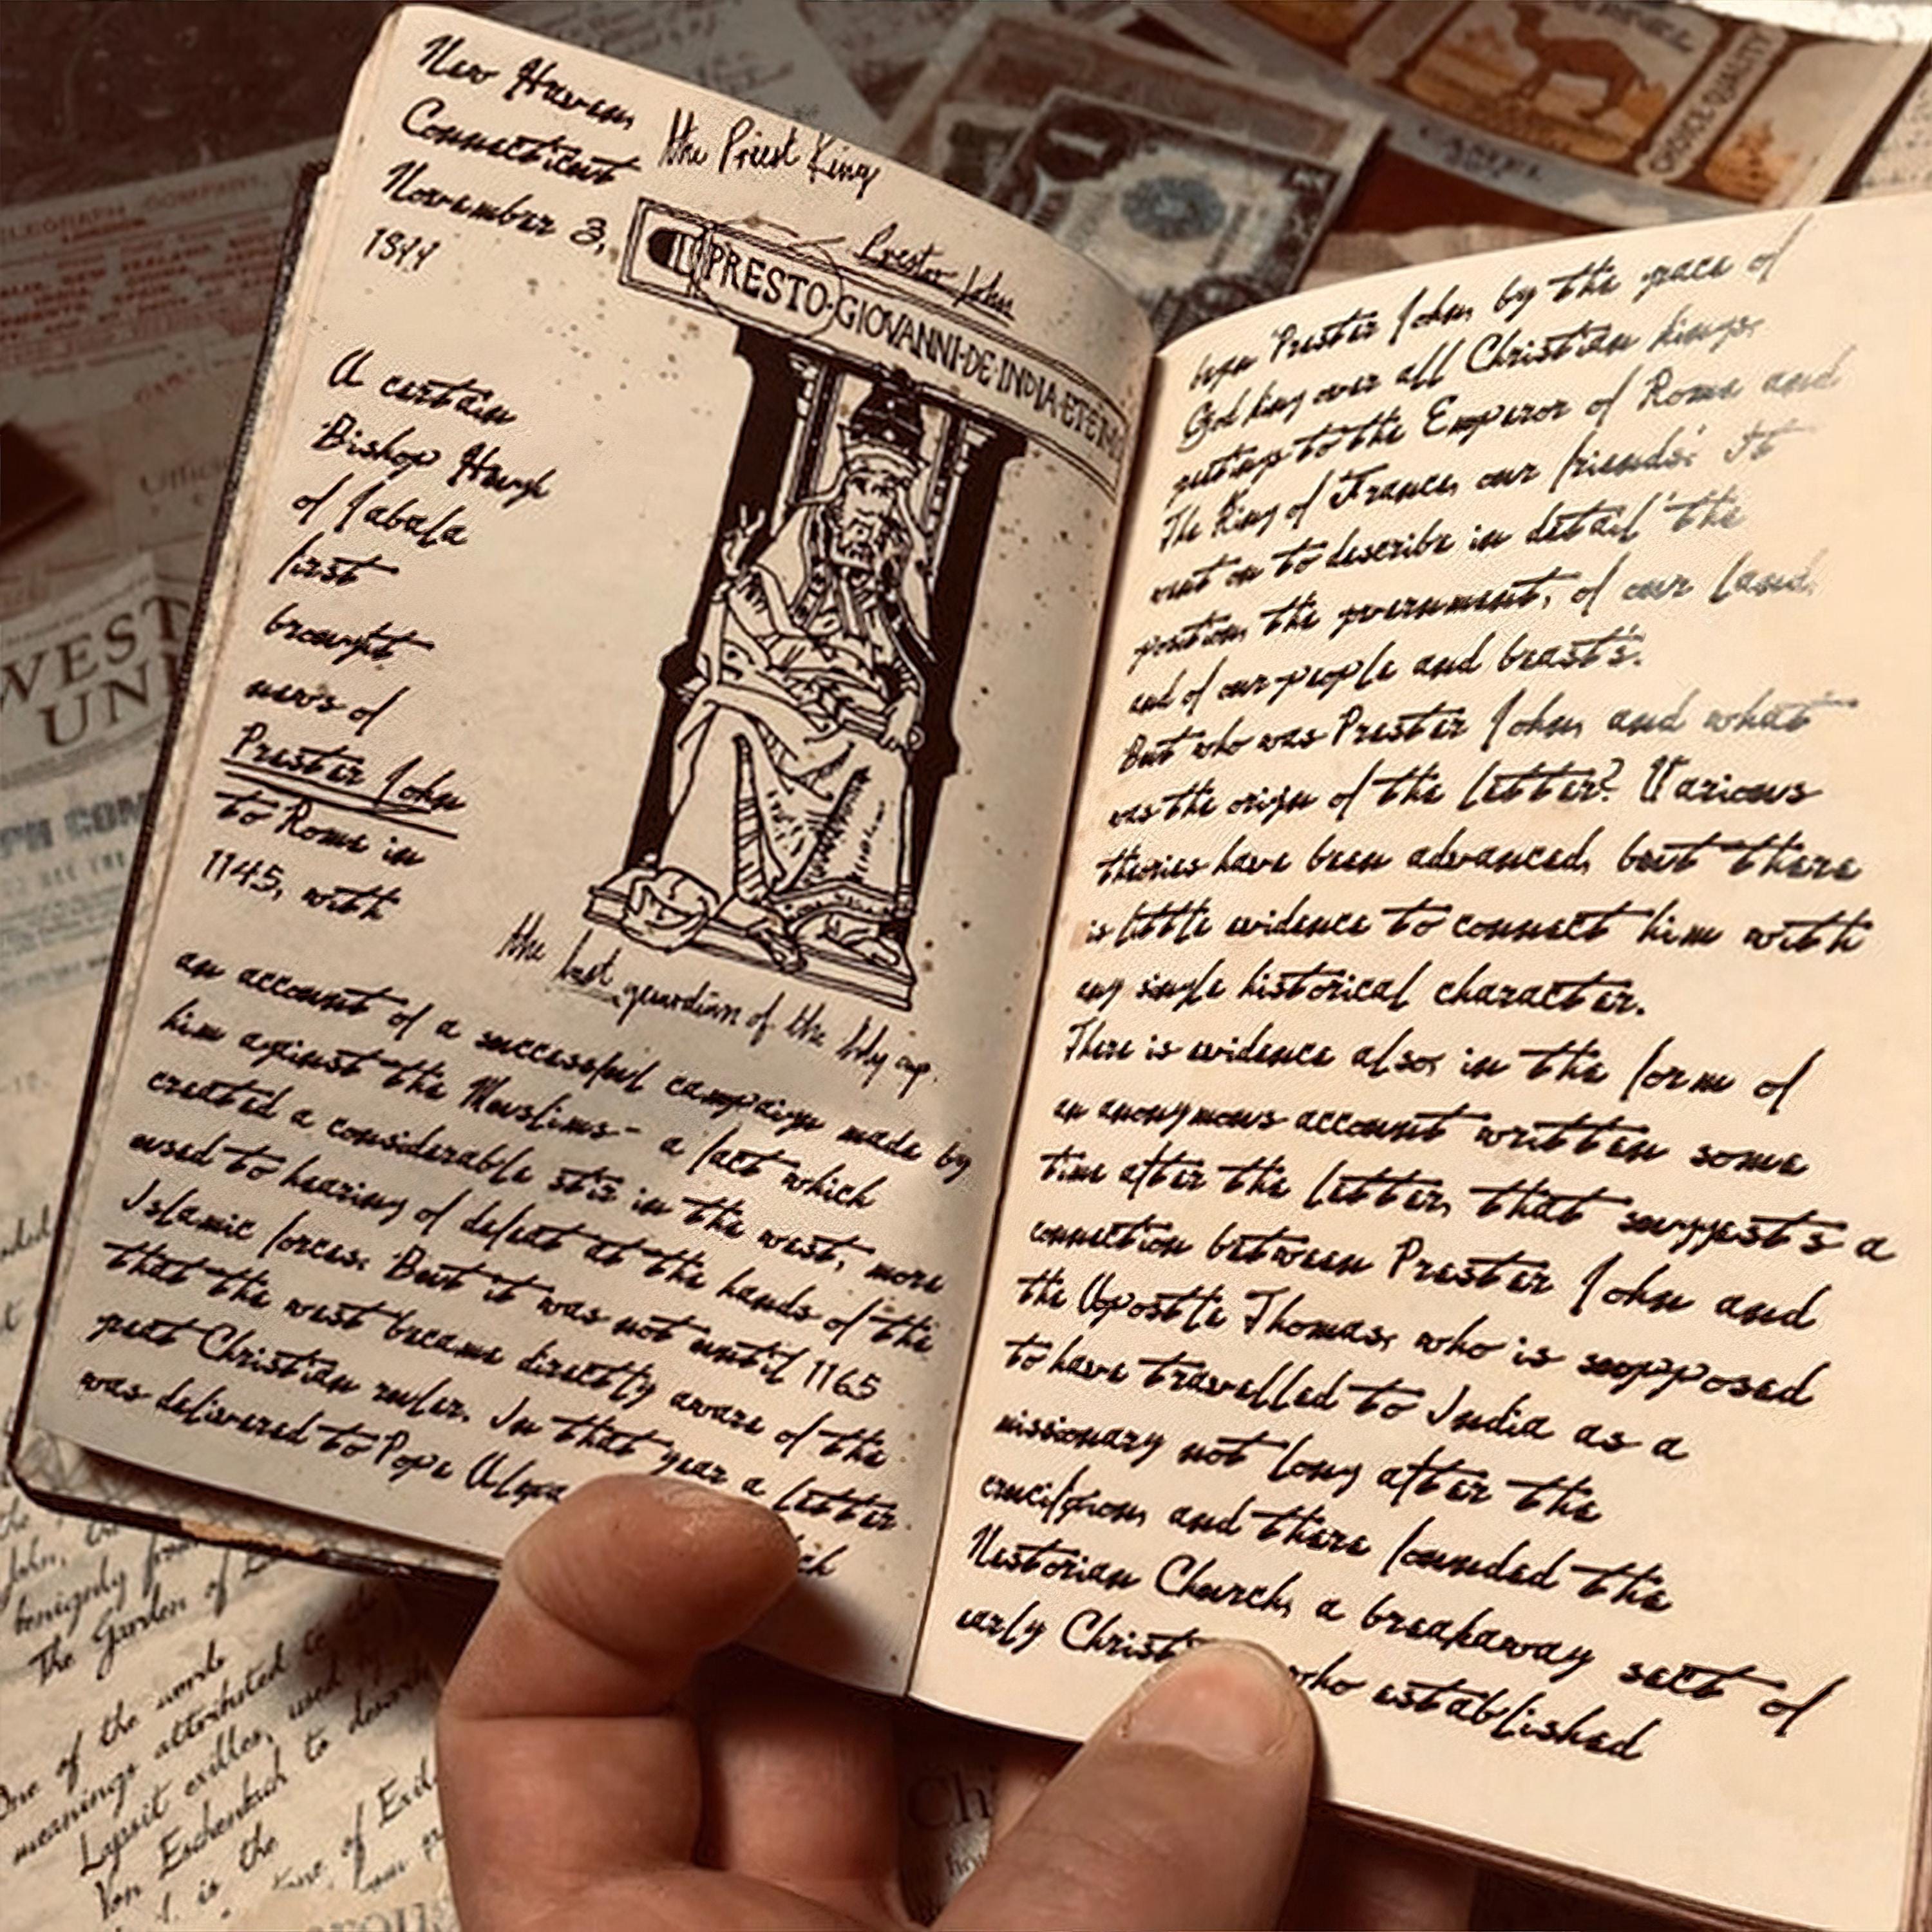 New Haven,
Connecticut
November 3,
1899
the Priest King
Prester John
IL PRESTO·GIOVANNI·DE·INDIA·ETE
A certain
Bishop Hugh
of Jabala
first
brought
news of
Prester John
to Rome in
1145, with
the last guardian of the holy cup.
an account of a successful campaign made by
him against the Muslims - a fact which
created a considerable stir in the west, more
used to hearing of defeat at the hands of the
Islamic forces. But it was not until 1165
that the west became directly aware of the
great Christian ruler. In that year a letter
was delivered to Pope
began 'Prester John, by the grace of
God king over all Christian kings,
greetings to the Emperor of Rome and
The King of France, our friends.' It
went on to describe in detail 'the
position, the government, of our land,
and of our people and beasts.'
But who was Prester John, and what
was the origin of the letter? Various
theories have been advanced, but there
is little evidence to connect him with
any single historical character.
There is evidence also, in the form of
an anonymous account written some
time after the letter, that suggests a
connection between Prester John and
the Apostle Thomas, who is supposed
to have travelled to India as a
missionary not long after the
crucifixion, and there founded the
Nestorian Church, a breakaway sect of
early who established
WEST
UNI
CHOICE QUALITY
benignly
The Garden of
One of the words
meanings attributed to
Lapsit exilles, used
Von Eschenbach to describe
is the
of Exile